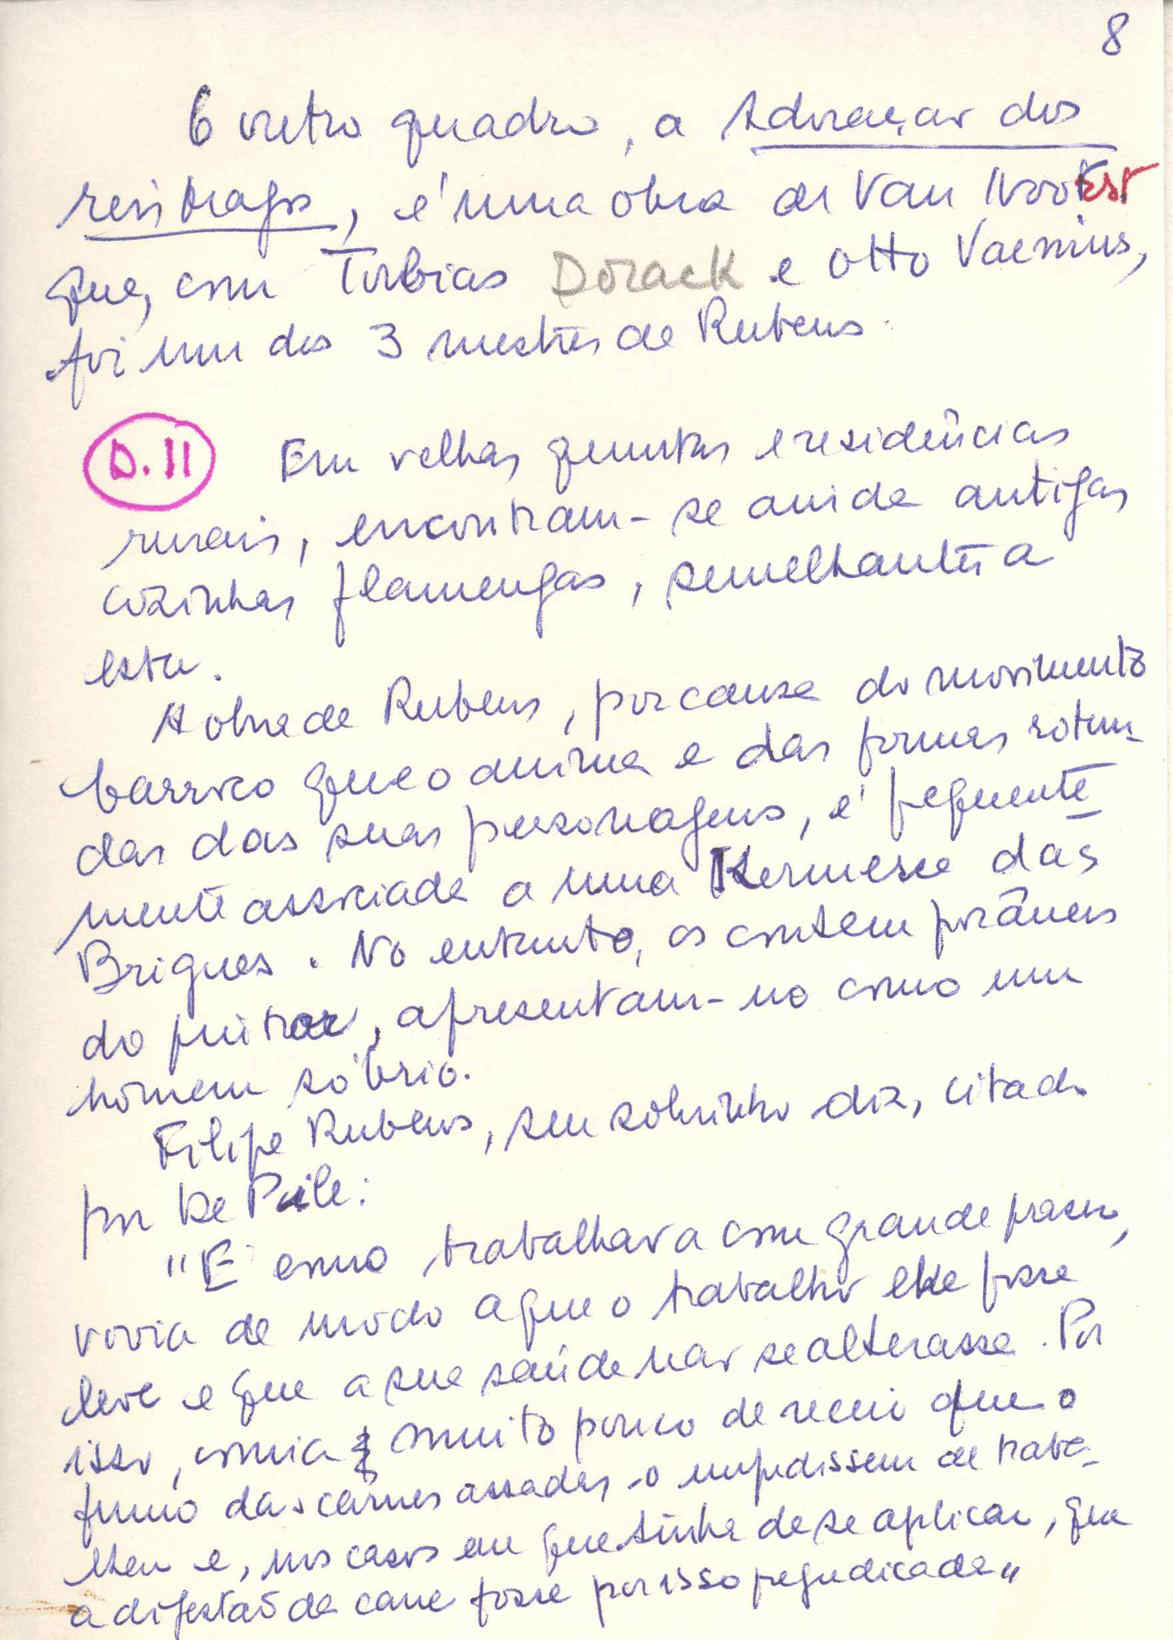 8
O outro quadro, a Adoração dos
reis magos, é uma obra de Van Noort
que, com Tobias Dorack e Otto Vaenius,
foi um dos 3 mestres de Rubens.
D.11 Em velhas quintas e residências
rurais, encontram-se ainda antigas
cozinhas flamengas, semelhantes a
esta.
A obra de Rubens, por causa do movimento
barroco que o anima e das formas rotun-
das das suas personagens, é frequente-
mente associada a uma Kermesse das
Brigues. No entanto, os contemporâneos
do pintor, apresentam-no como um
homem sóbrio.
Filipe Rubens, seu sobrinho diz, citado
por De Pile:
"E como trabalhava com grande prazer,
vivia de modo a que o trabalho lhe fosse
leve e que a sua saúde não se alterasse. Por
isso, comia muito pouco de receio que o
fumo das carnes assadas o impedissem de traba-
lhar e, nos casos em que tinha de se aplicar, que
a digestão da carne fosse por isso prejudicada"